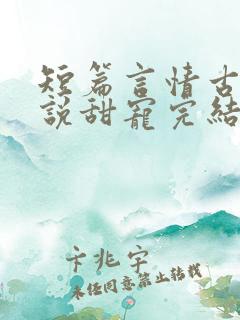 短篇言情古
說甜寵完結
卡兆宇
未经同意禁止转载